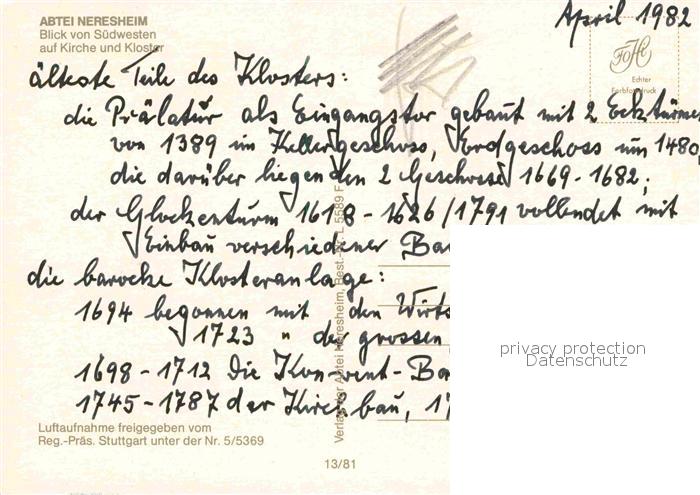 April 1982
ABTEI NERESHEIM
Blick von Südwesten
auf Kirche und Kloster
Echter
Farbfotodruck
älteste Teile des Klosters:
die Prälatur als Eingangstor gebaut mit 2 Ecktürmen
von 1389 im Kellergeschoss, Erdgeschoss um 1480,
die darüber liegenden 2 Geschosse 1669-1682;
der Glockenturm 1618-1626/1791 vollendet mit
Einbau verschiedener
die barocke Klosteranlage:
1694 begonnen mit den
1723 " der grossen
1698-1712 die Konvent-
1745-1787 der Kirchbau,
privacy protection
Datenschutz
Luftaufnahme freigegeben vom
Reg.-Präs. Stuttgart unter der Nr. 5/5369
13/81
Verlag der Abtei Neresheim, Best.-Nr. L 5589